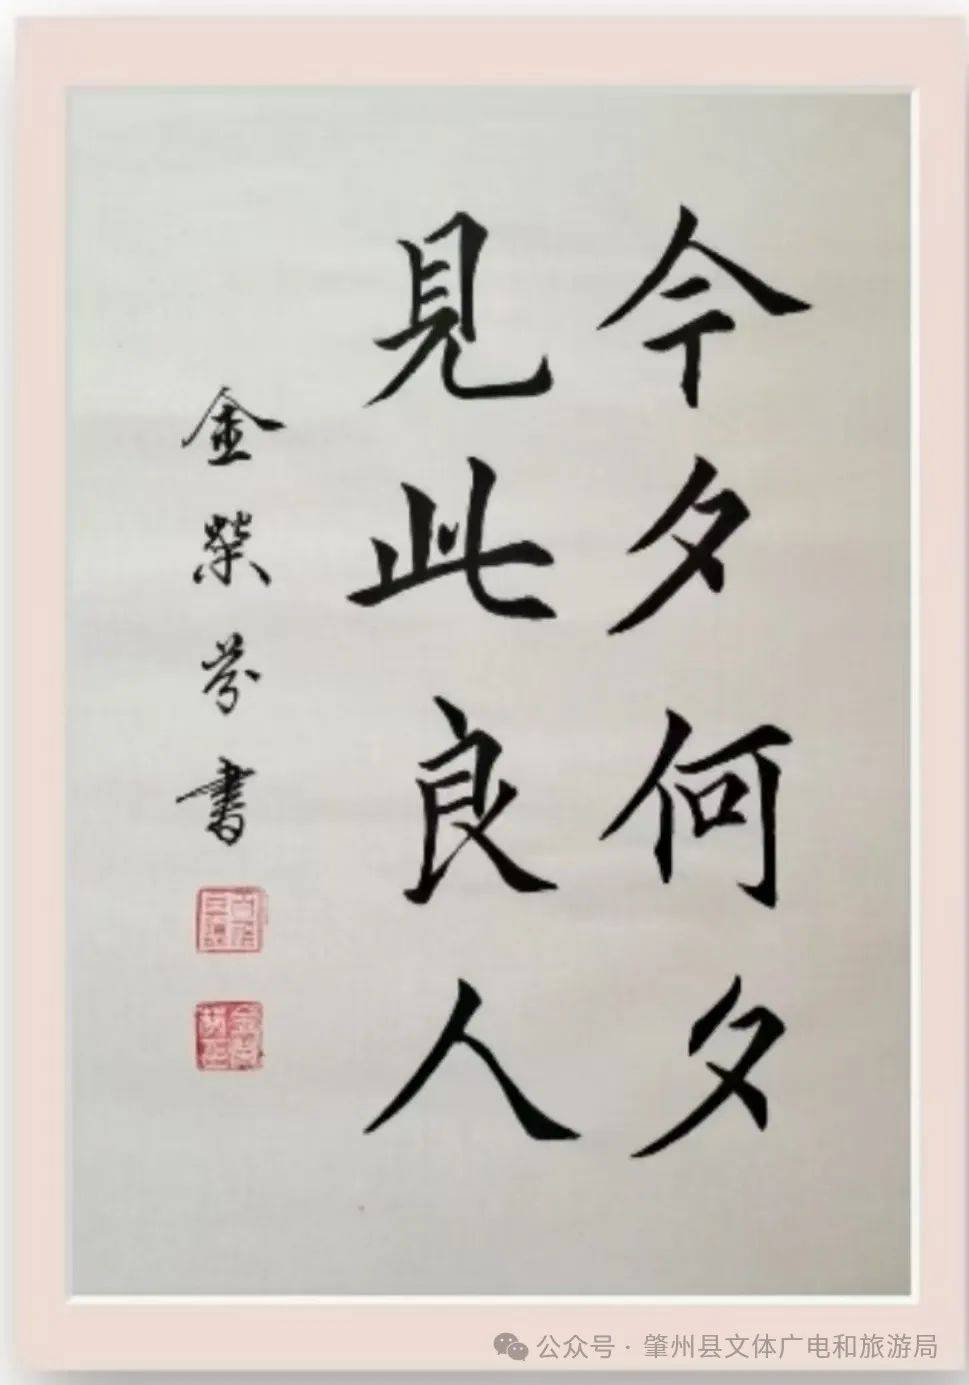 今夕何夕
見此良人
金榮芬書
公众号 · 肇州县文体广电和旅游局